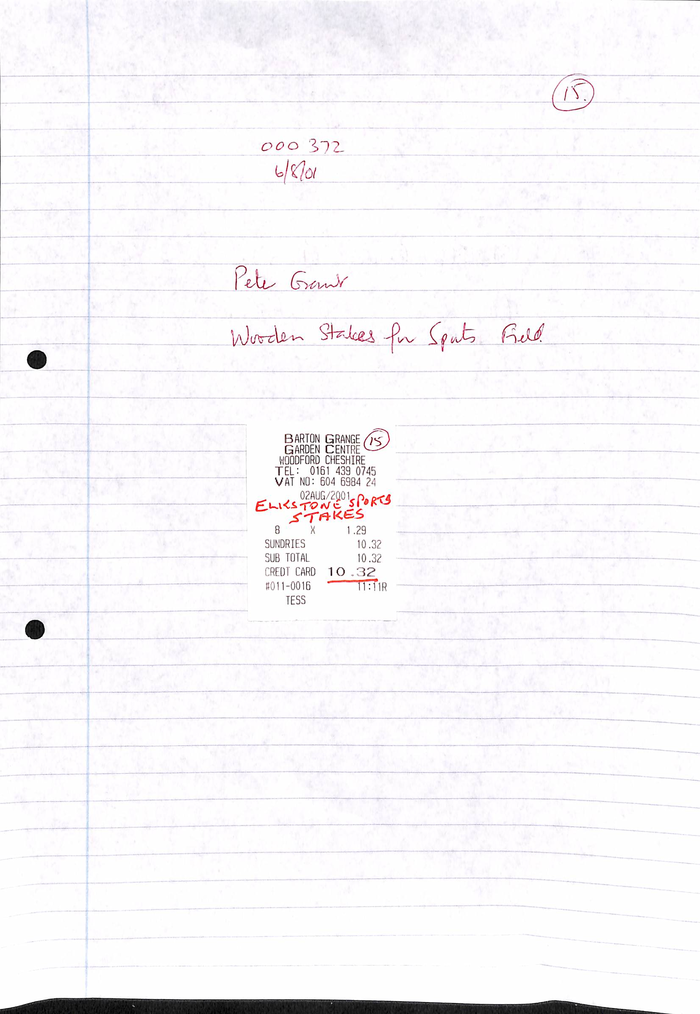 15.
000 372
6/8/01
Pete Grant
Wooden Stakes for Sports Field
BARTON GRANGE 15
GARDEN CENTRE
WOODFORD CHESHIRE
TEL: 0161 439 0745
VAT NO: 604 6984 24
02AUG/2001
ELKSTONE SPORTS
STAKES
8 X 1.29
SUNDRIES 10.32
SUB TOTAL 10.32
CREDT CARD 10.32
#011-0016 11:11R
TESS